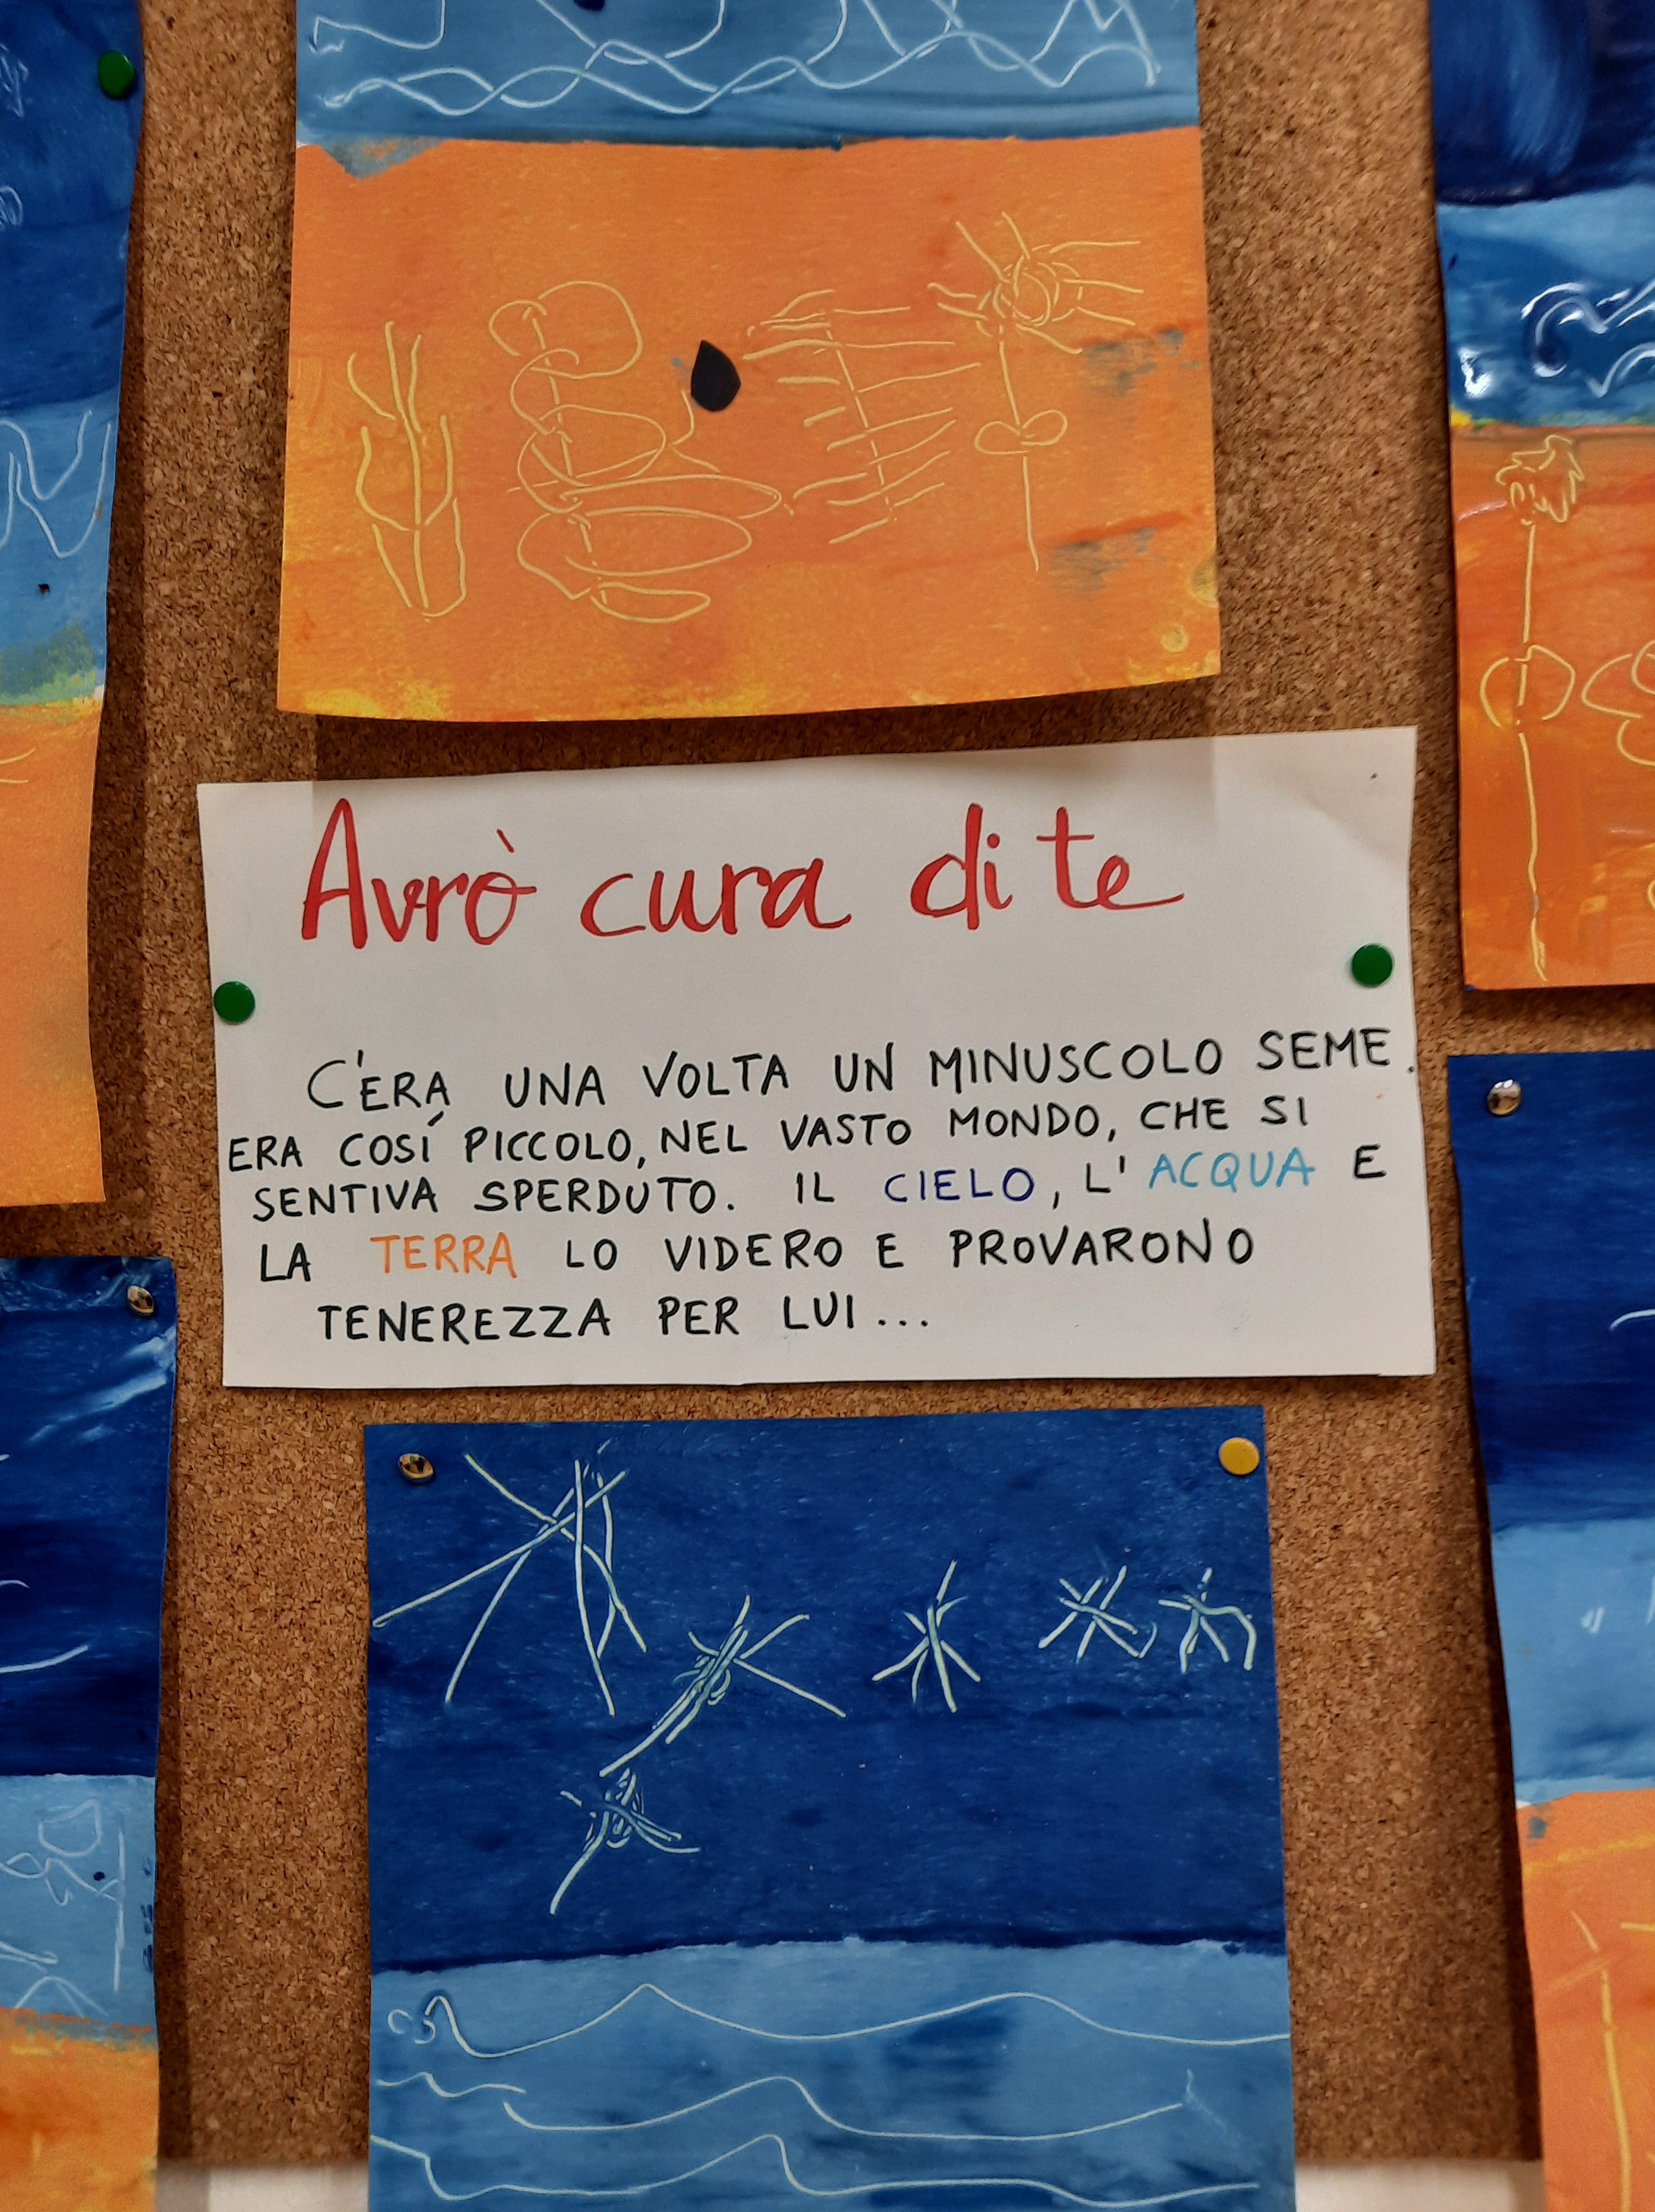 Avrò cura di te
C'ERA UNA VOLTA UN MINUSCOLO SEME.
ERA COSÍ PICCOLO, NEL VASTO MONDO, CHE SI
SENTIVA SPERDUTO. IL CIELO, L'ACQUA E
LA TERRA LO VIDERO E PROVARONO
TENEREZZA PER LUI...